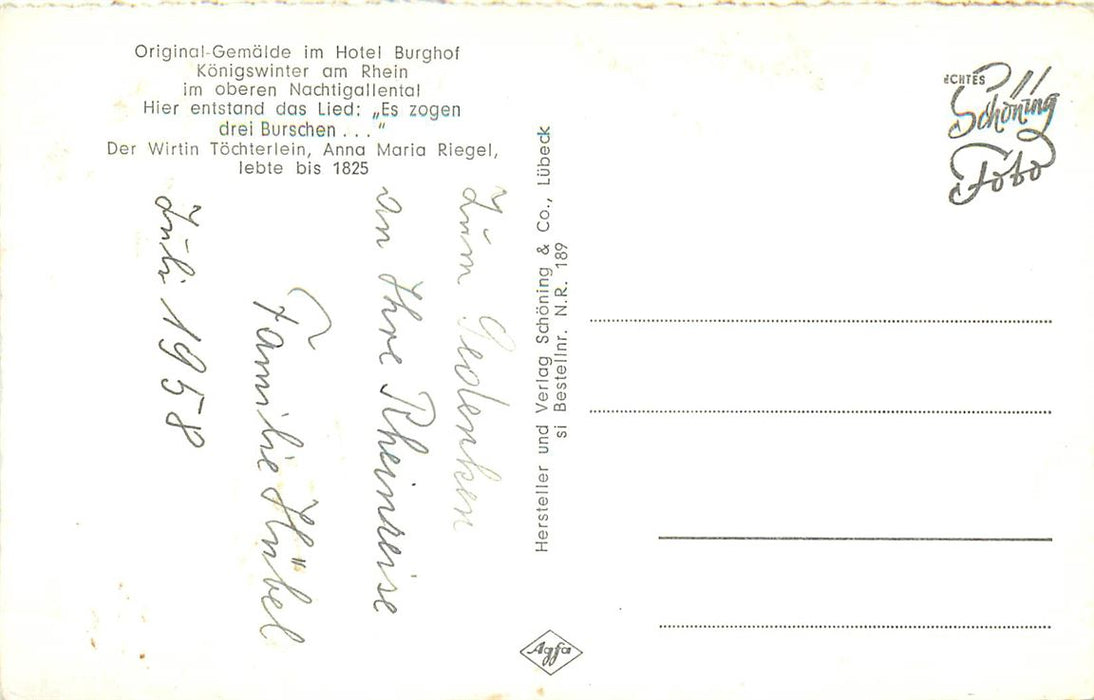 Original-Gemälde im Hotel Burghof
Königswinter am Rhein
im oberen Nachtigallental
Hier entstand das Lied: „Es zogen
drei Burschen . . . "
Der Wirtin Töchterlein, Anna Maria Riegel,
lebte bis 1825
Zum Gedenken
an Ihre Rheinreise
Familie Hübel
Juli 1958
Hersteller und Verlag Schöning & Co., Lübeck
si Bestellnr. N.R. 189
ECHTES
Schöning
Foto
Agfa